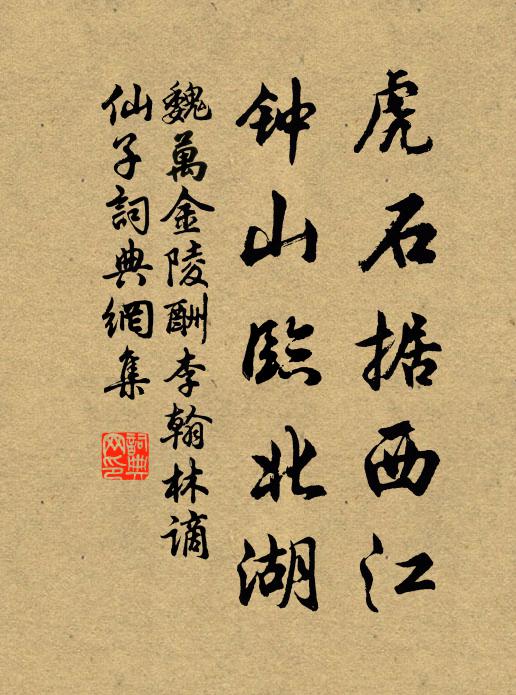 虎石据西江
钟山臨北湖
魏萬金陵酬李翰林谪
仙子詞典網集
詞典
网印